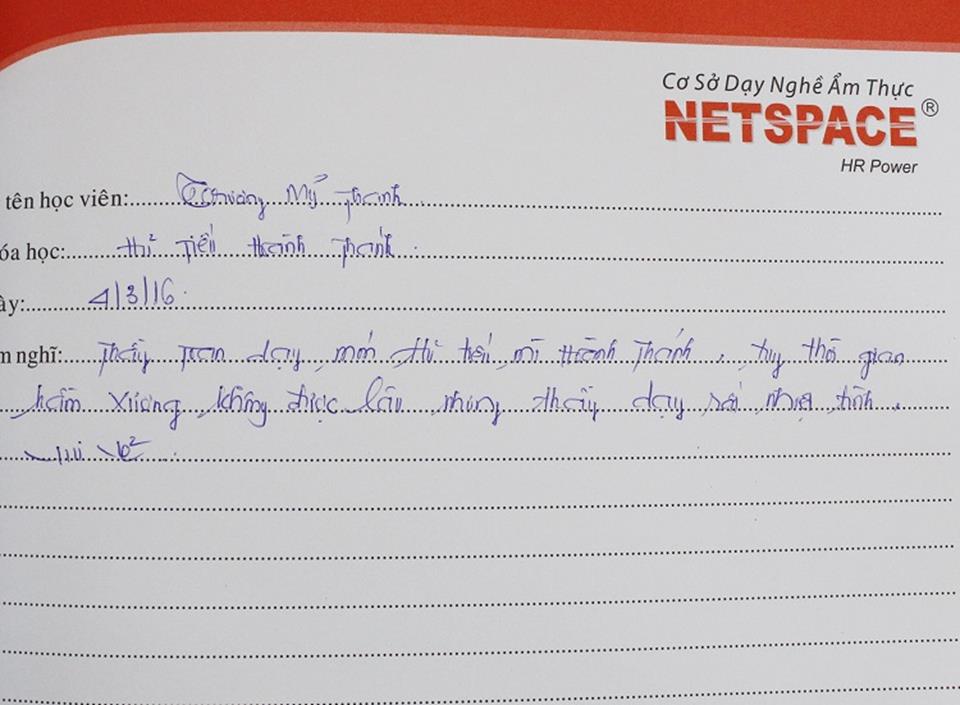 Cơ Sở Dạy Nghề Ẩm Thực
NETSPACE®
HR Power
tên học viên: Trương Mỹ Thanh
óa học: Hủ Tiếu Thành Thánh
ày: 4/3/16
m nghĩ: Thầy Toan dạy món Hủ tiếu mì Thành Thánh, tuy thời gian
hầm xương không được lâu nhưng thầy dạy rất nhiệt tình.
Vui vẻ